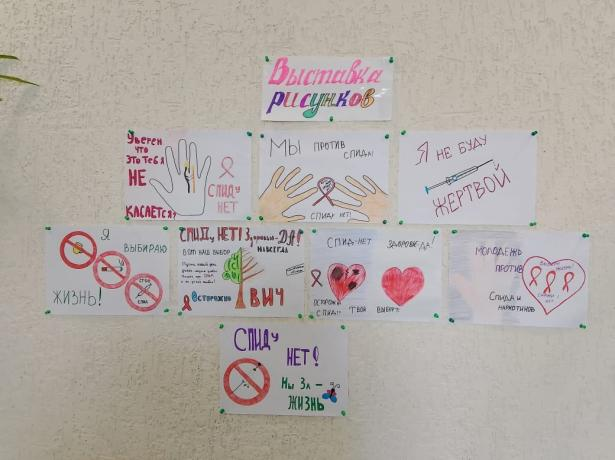 Выставка
рисунков
Уверен
что
это тебя
НЕ
КАСАЕТСЯ?
СПИДУ
НЕТ
МЫ ПРОТИВ
СПИДА!
СПИДУ НЕТ!
Я НЕ БУДУ
ЖЕРТВОЙ
Я
ВЫБИРАЮ
ЖИЗНЬ!
СПИДу НЕТ! Здоровью-ДА!
НАВСЕГДА
ВОТ НАШ ВЫБОР
Осторожно
ВИЧ
СПИД-НЕТ ЗДОРОВЬЕ-ДА!
ОСТОРОЖНО
СПИД!!
ТВОЙ ВЫБОР!
МОЛОДЕЖЬ
ПРОТИВ
СПИДа и
НАРКОТИКОВ
СПИДу
НЕТ!
Мы За -
ЖИЗНЬ